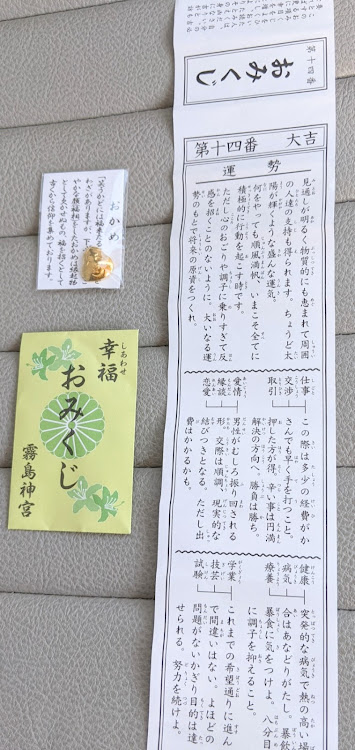 第十四番
おみくじ
第十四番 大吉
運勢
見通しが明るく物質的にも恵まれて周囲
の人達の支持も得られます。ちょうど太
陽が輝くような盛んな運気。
何をやっても順風満帆、いまこそ全てに
積極的に行動を起こす時です。
ただし心のおごりや調子に乗りすぎて反
感を招くことのないように。大いなる運
勢のもとで将来の原資をつくれ。
仕事
交渉
取引
この際は多少の経費がか
さんでも早く手を打つこと。
押した方が得。辛い事は円満
解決の方向へ。勝負は勝ち。
愛情
縁談
恋愛
男性がむしろ振り回される
形。交際は順調、現実的な
結びつきとなる。ただし出
費はかかるかも。
健康
病気
療養
突発的な病気で熱の高い場
合はあなどりがたし。暴飲
暴食に気をつけよ。八分目
に調子を抑えること。
学業
技芸
試験
これまでの希望通りに進ん
で間違いはない。よほどの
問題がないかぎり目的は達
せられる。努力を続けよ。
おかめ
「笑う門には福来たる」
わざがあります。
やかな顔
として欠かせぬもの。福を招くとして
古くから信仰を集めております。
しあわせ
幸福
おみくじ
霧島神宮